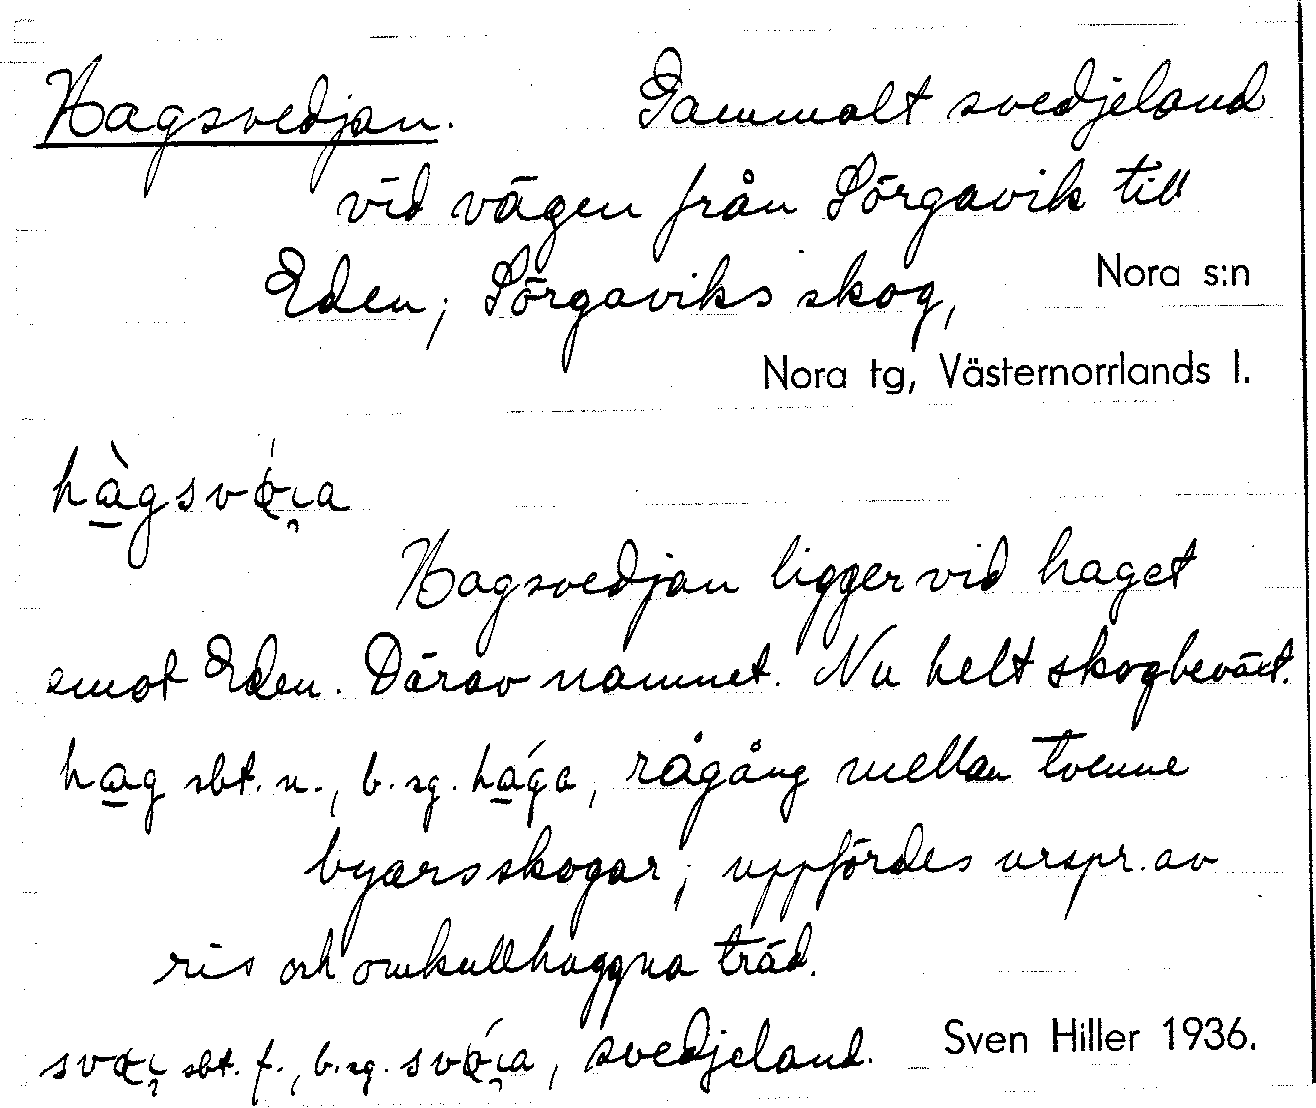 Hagsvedjan. Gammalt svedjeland
vid vägen från Sörgavik till
Eden; Sörgaviks skog,
Nora s:n
Nora tg, Västernorrlands l.
Hagsvedjan ligger vid haget
emot Eden. Därav namnet. Nu helt skogbeväxt.
hag sbt. n., b. sg. rågång mellan tvenne
byars skogar; uppfördes urspr. av
ris och omkullhuggna träd.
sbt. f., b. sg. svedjeland.
Sven Hiller 1936.